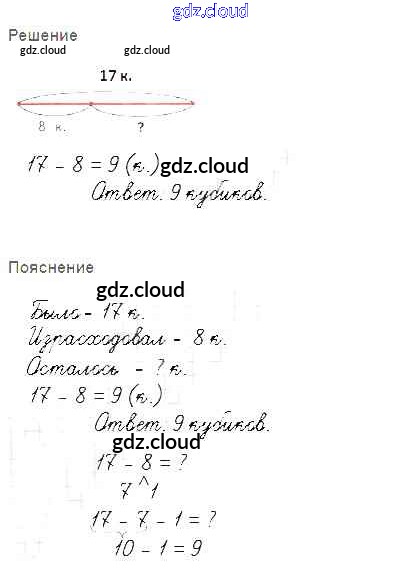 gdz.cloud
Решение
gdz.cloud gdz.cloud
17 к.
8 к. ?
17 - 8 = 9 (к.) gdz.cloud
Ответ. 9 кубиков.
Пояснение
gdz.cloud
Было - 17 к.
Израсходовал - 8 к.
Осталось - ? к.
17 - 8 = 9 (к.)
Ответ. 9 кубиков.
gdz.cloud
17 - 8 = ?
7 ^ 1
17 - 7 - 1 = ?
10 - 1 = 9